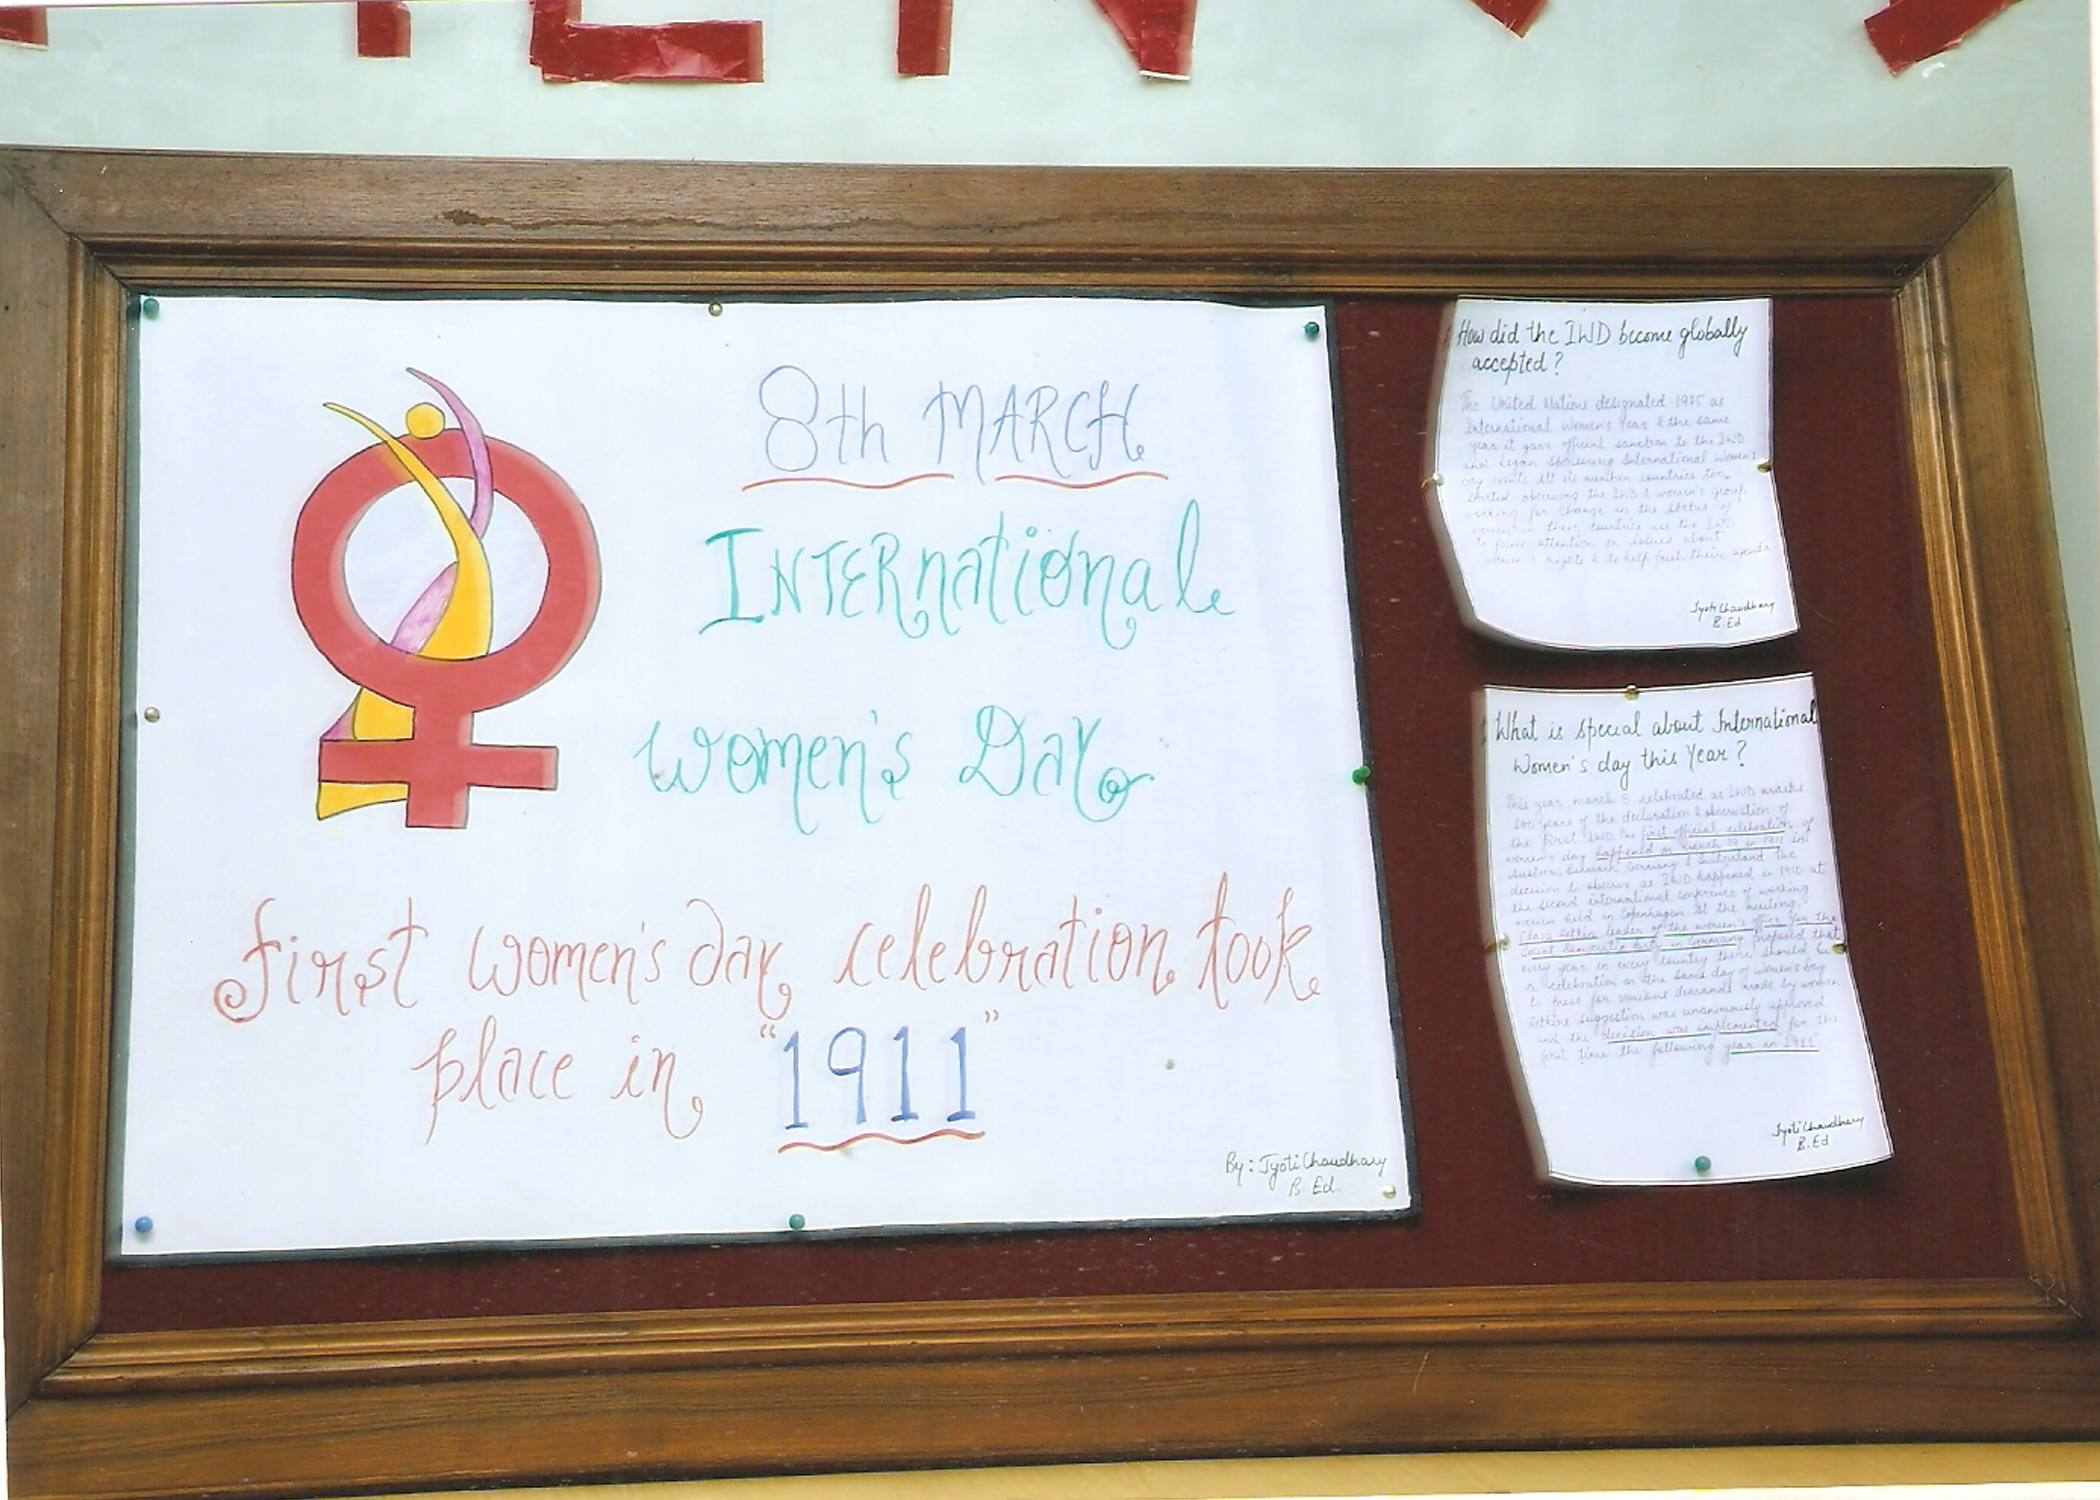 8th MARCH
INTERnational
women's Day
first women's day celebration took
place in "1911"
By: Jyoti Chaudhary
B. Ed.
How did the IWD become globally
accepted?
The United Nations designated 1975 as
International Women's Year & the same
year it gave official sanction to the IWD
and began sponsoring International Women's
day events. All its member countries too
started observing the IWD & women's group
working for change in the status of
women in their countries use the IWD
to focus attention on issues about
women's rights & to help push their agenda
Jyoti Chaudhary
B. Ed
What is special about International
Women's day this Year?
This year march 8 celebrated as IWD marks
100 years of the declaration & observation of
the first IWD. The first official celebration of
women's day happened on march 19 in 1911 in
Austria, Denmark, Germany & Switzerland. The
decision to observe as IWD happened in 1910 at
the second international conference of working
women held in Copenhagen. At the meeting,
Clara Zetkin leader of the women's office for the
Social Democratic Party in Germany proposed that
every year in every country there should be
a celebration on the same day of women's Day
to press for demands made by women
Zetkins suggestion was unanimously approved
and the decision was implemented for the
first time the following year in
Jyoti Chaudhary
B. Ed